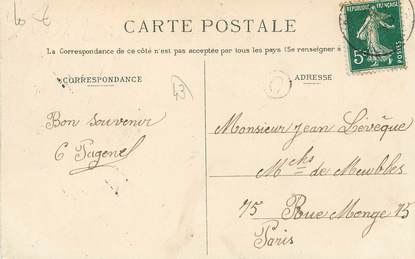 CARTE POSTALE
La Correspondance de ce côté n'est pas acceptée par tous les pays (Se renseigner à
CORRESPONDANCE
ADRESSE
REPUBLIQUE FRANÇAISE
5c
POSTES
43
Bon souvenir
Monsieur Jean Lévêque
Mds de Meubles
75 Rue Monge 75
Paris